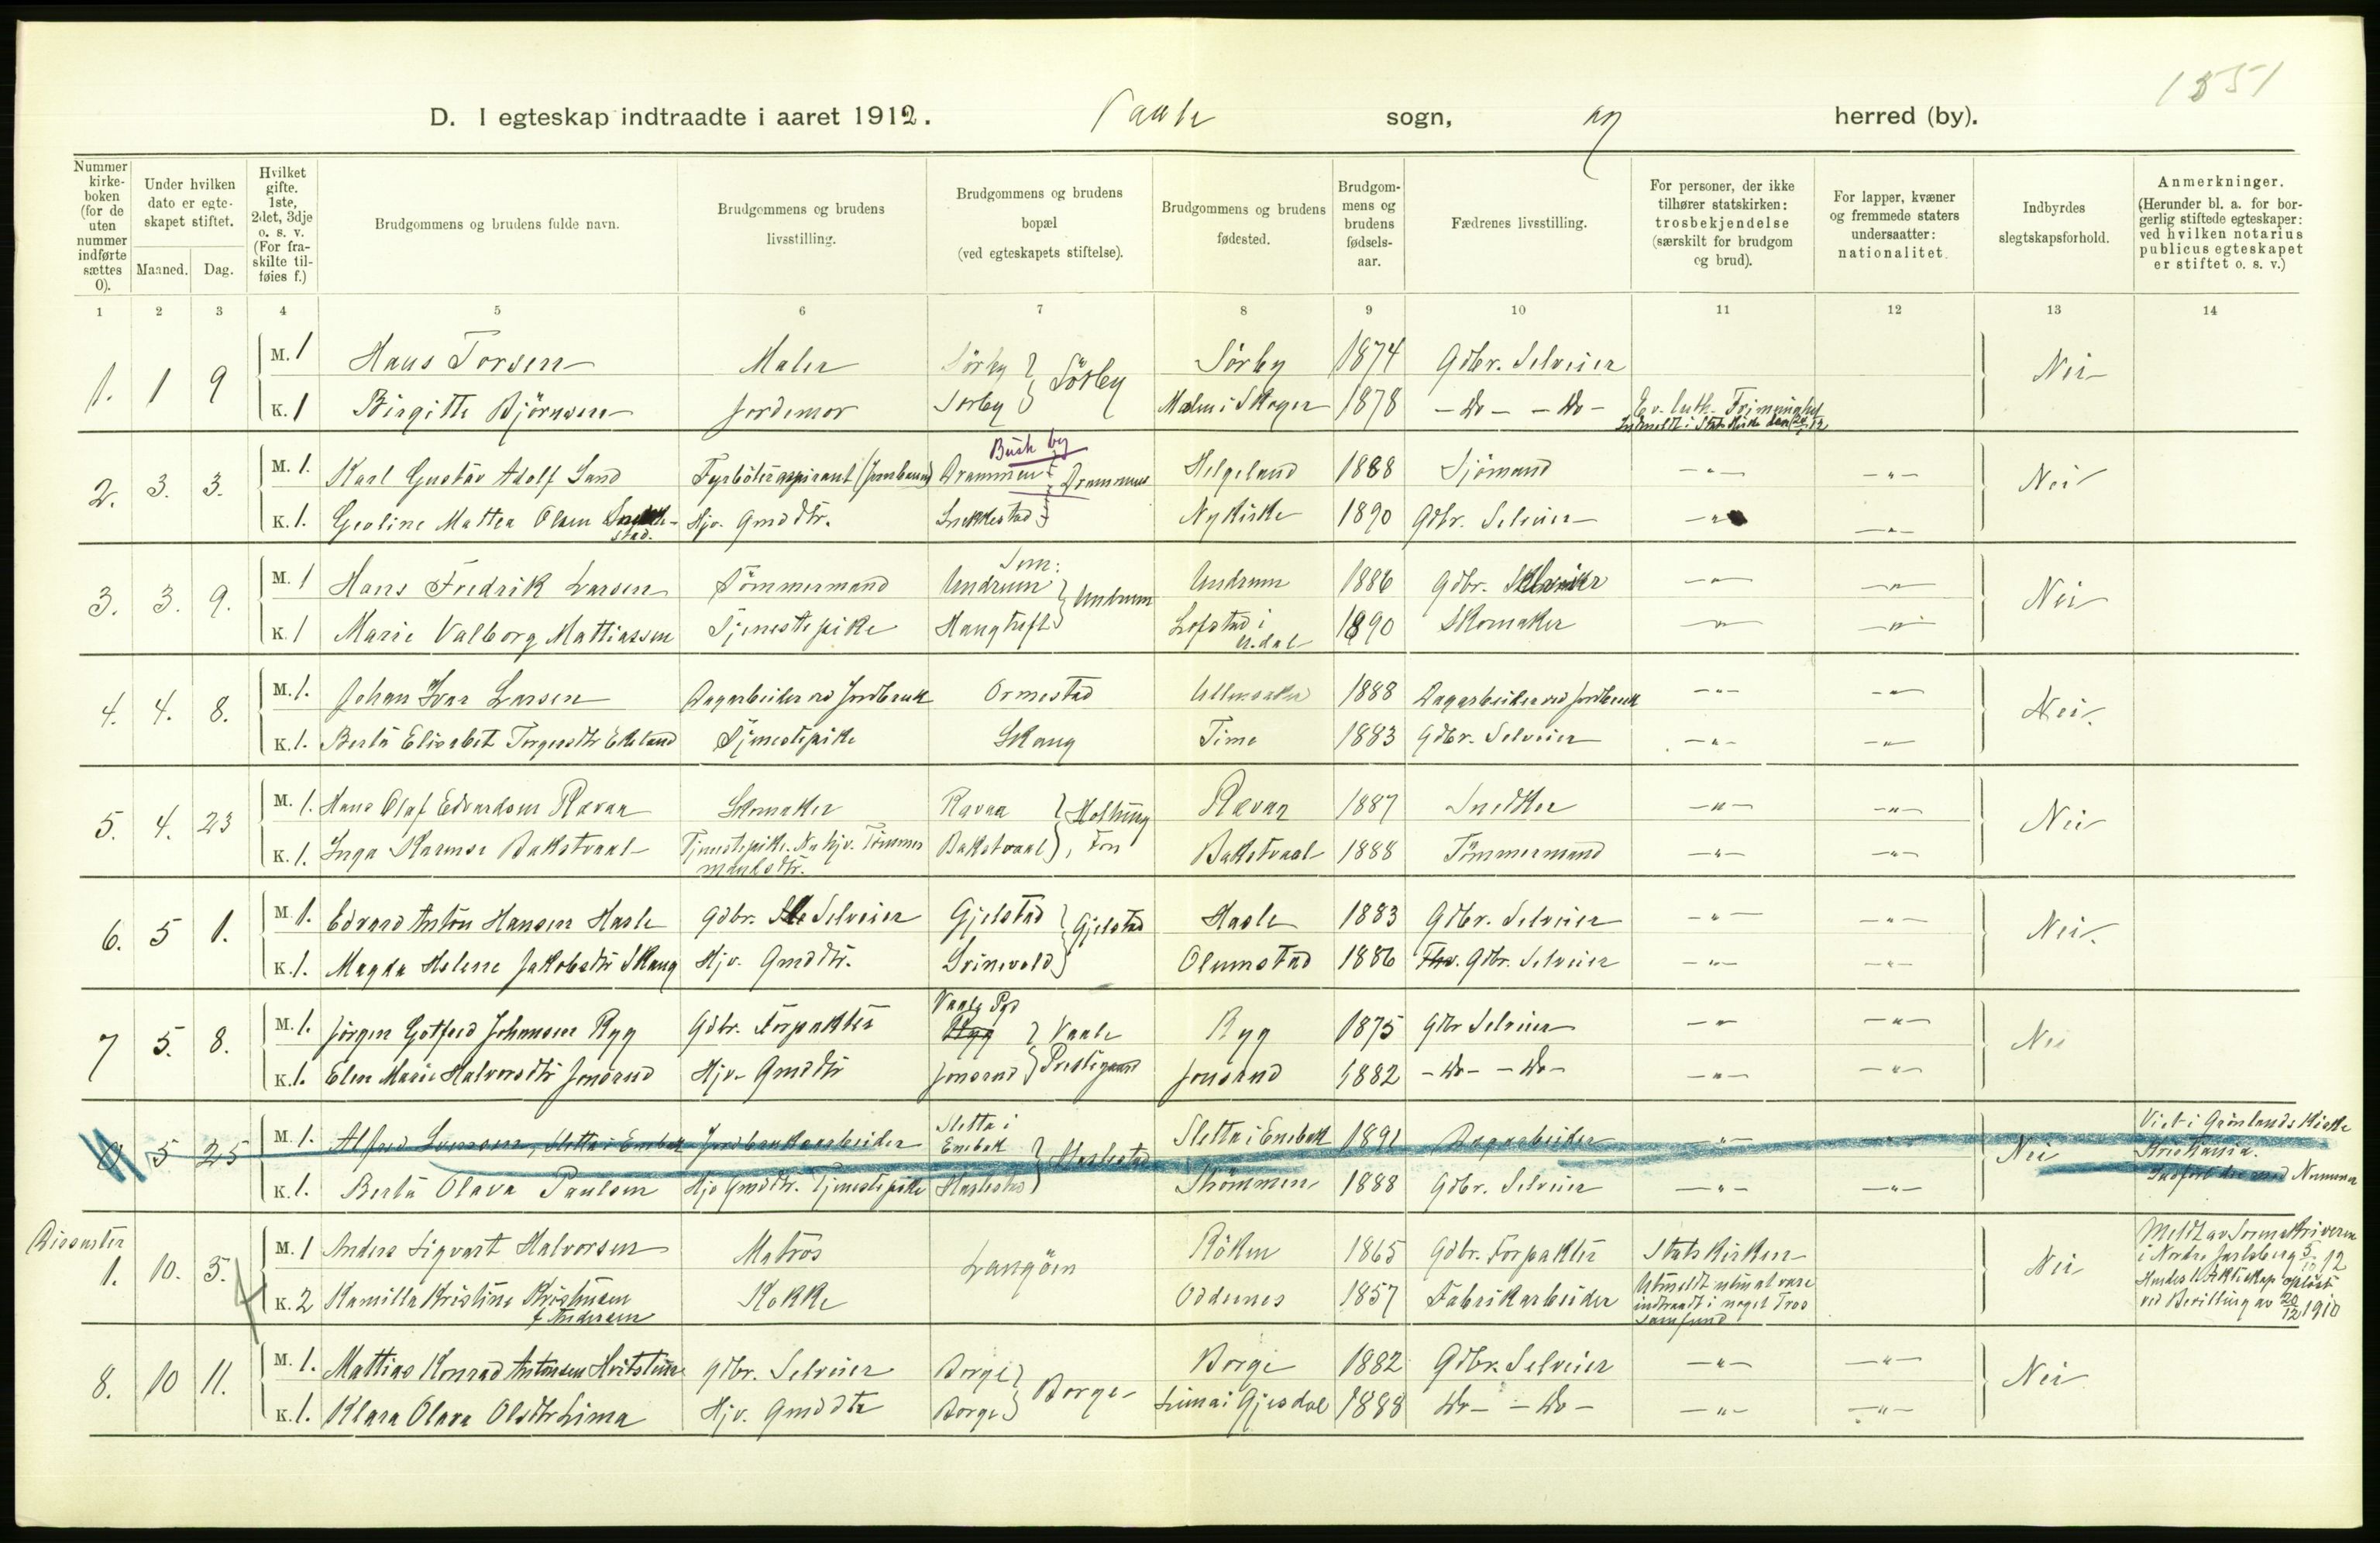 1851
D. I egteskap indtraadte i aaret 1912. Vaale sogn, herred (by).
Nummer kirke-boken (for de uten nummer indførte sættes 0).
Under hvilken dato er egte-skapet stiftet.
Maaned. Dag.
Hvilket gifte. 1ste, 2det, 3dje o. s. v. (For fra-skilte til-føies f.)
Brudgommens og brudens fulde navn.
Brudgommens og brudens livsstilling.
Brudgommens og brudens bopæl (ved egteskapets stiftelse).
Brudgommens og brudens fødested.
Brudgom-mens og brudens fødsels-aar.
Fædrenes livsstilling.
For personer, der ikke tilhører statskirken: trosbekjendelse (særskilt for brudgom og brud).
For lapper, kvæner og fremmede staters undersaatter: nationalitet.
Indbyrdes slegtskapsforhold.
Anmerkninger. (Herunder bl. a. for bor-gerlig stiftede egteskaper: ved hvilken notarius publicus egteskapet er stiftet o. s. v.)
1 2 3 4 5 6 7 8 9 10 11 12 13 14
1. 1 9 M. 1 Hans Torsen Maler Sørby } Sørby Sörby 1874 Gdbr. Selveier Nei
K. 1 Birgitte Björnsen Jordemor Sørby Malm i Skoger 1878 - Do - - Do - Ev. luth. Frimenighet
Indmeldt i Statskirke den
Busk by
2. 3. 3. M. 1. Karl Gustav Adolf Sand Fyrböteraspirant (Jernbanen) Drammen } Drammen Helgeland 1888 Sjömand -"- -"- Nei
K. 1. Geoline Mathea Olsen Snekke-stad. Hjv. Gmddtr. Snekkestad Nykirke 1890 Gdbr. Selveier -"- -"-
Sem:
3. 3. 9. M. 1 Hans Fredrik Larsen Tömmermand Undrum } Undrum Undrum 1886 Gdbr. Selveier -"- -"- Nei
K. 1 Marie Valborg Mattiassen Tjenestepike Haugtuft Lofstad i A.dal 1890 Skomaker -"- -"-
4. 4. 8. M. 1. Johan Ivar Larsen Dagarbeider ved Jordbruk Ormestad Ullensaker 1888 Dagarbeider ved Jordbruk -"- -"- Nei.
K. 1. Berta Elisabet Torgersdtr Ekeland Tjenestepike Skaug Time 1883 Gdbr. Selveier -"- -"-
5. 4. 23 M. 1. Hans Olaf Edvardsen Ravaa Skomaker Ravaa } Holtung, Fon Ravaa 1887 Snedker -"- -"- Nei
K. 1. Inga Bakstvaal Tjenestepike. Nu hjv. Tömmermandsdtr. Bakstvaal Bakstvaal 1888 Tömmermand -"- -"-
6. 5 1. M. 1. Edvard Anton Hansen Hasle Gdbr. Selveier Gjelstad } Gjelstad Hasle 1883 Gdbr. Selveier -"- -"- Nei.
K. 1. Magda Helene Jakobsdtr Skaug Hjv. Gmddtr. Svinevold Olumstad 1886 Fhv. Gdbr. Selveier -"- -"-
Vaale Pgd
7 5. 8. M. 1. Jörgen Gotfred Johansen Ryg Gdbr. Forpakter Ryg } Vaale Prestegaard Ryg 1875 Gdbr Selveier -"- -"- Nei
K. 1. Elen Marie Halvorsdtr Jonsrud Hjv. Gmddtr Jonsrud Jonsrud 1882 - Do - - Do - -"- -"-
0 5 25 M. 1. Alfred Svensen, Sletta i Enebak Jordbruksarbeider Sletta i Enebak } Haslestad Sletta i Enebak 1891 Dagarbeider -"- -"- Nei Viet i Grönlands Kirke Kristiania.
K. 1. Berta Olava Paulsen Hjv Gmddtr. Tjenestepike Haslestad Strömmen 1888 Gdbr. Selveier -"- -"- Indfört der med Nummer
Dissenter
1. 10. 5. M. 1 Anders Sigvart Halvorsen Matros Langöen Röken 1865 Gdbr. Forpakter Statskirken Nei Meldt av Sorenskriveren i Nordre Jarlsberg 5/10 12
K. 2 Kamilla Kristine Kristensen f. Andersen Kokke Oddernes 1857 Fabrikarbeider Utmeldt uten at være indtraadt i noget Trossamfund Hendes 1. Ekteskap oplöst ved Bevilling av 20/12 1910
8. 10 11. M. 1. Mattias Konrad Antonsen Hvitstein Gdbr. Selveier Borge } Borge Borge 1882 Gdbr. Selveier -"- -"- Nei
K. 1. Klara Olava Olsdtr Lima Hjv. Gmddtr Borge Lima i Gjesdal 1888 Do - - Do - -"- -"-